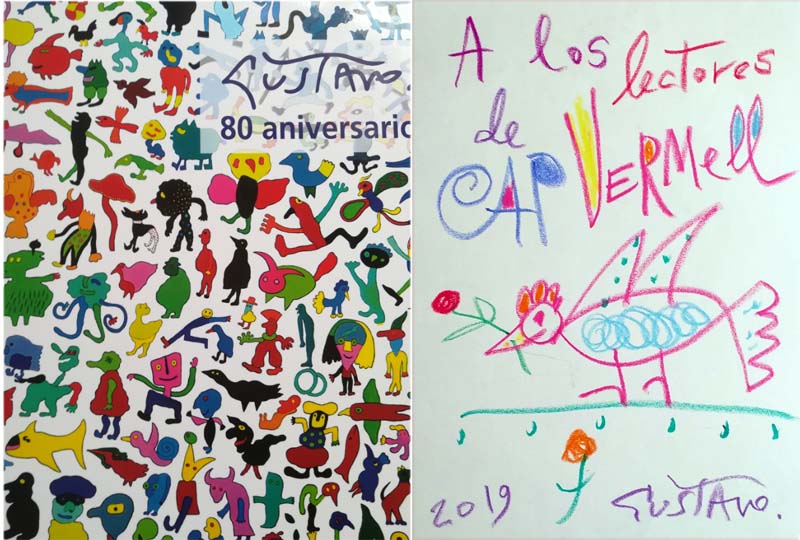 GUSTAVO.
80 aniversario
A los lectores
de
CAP VERMELL
2019 GUSTAVO.